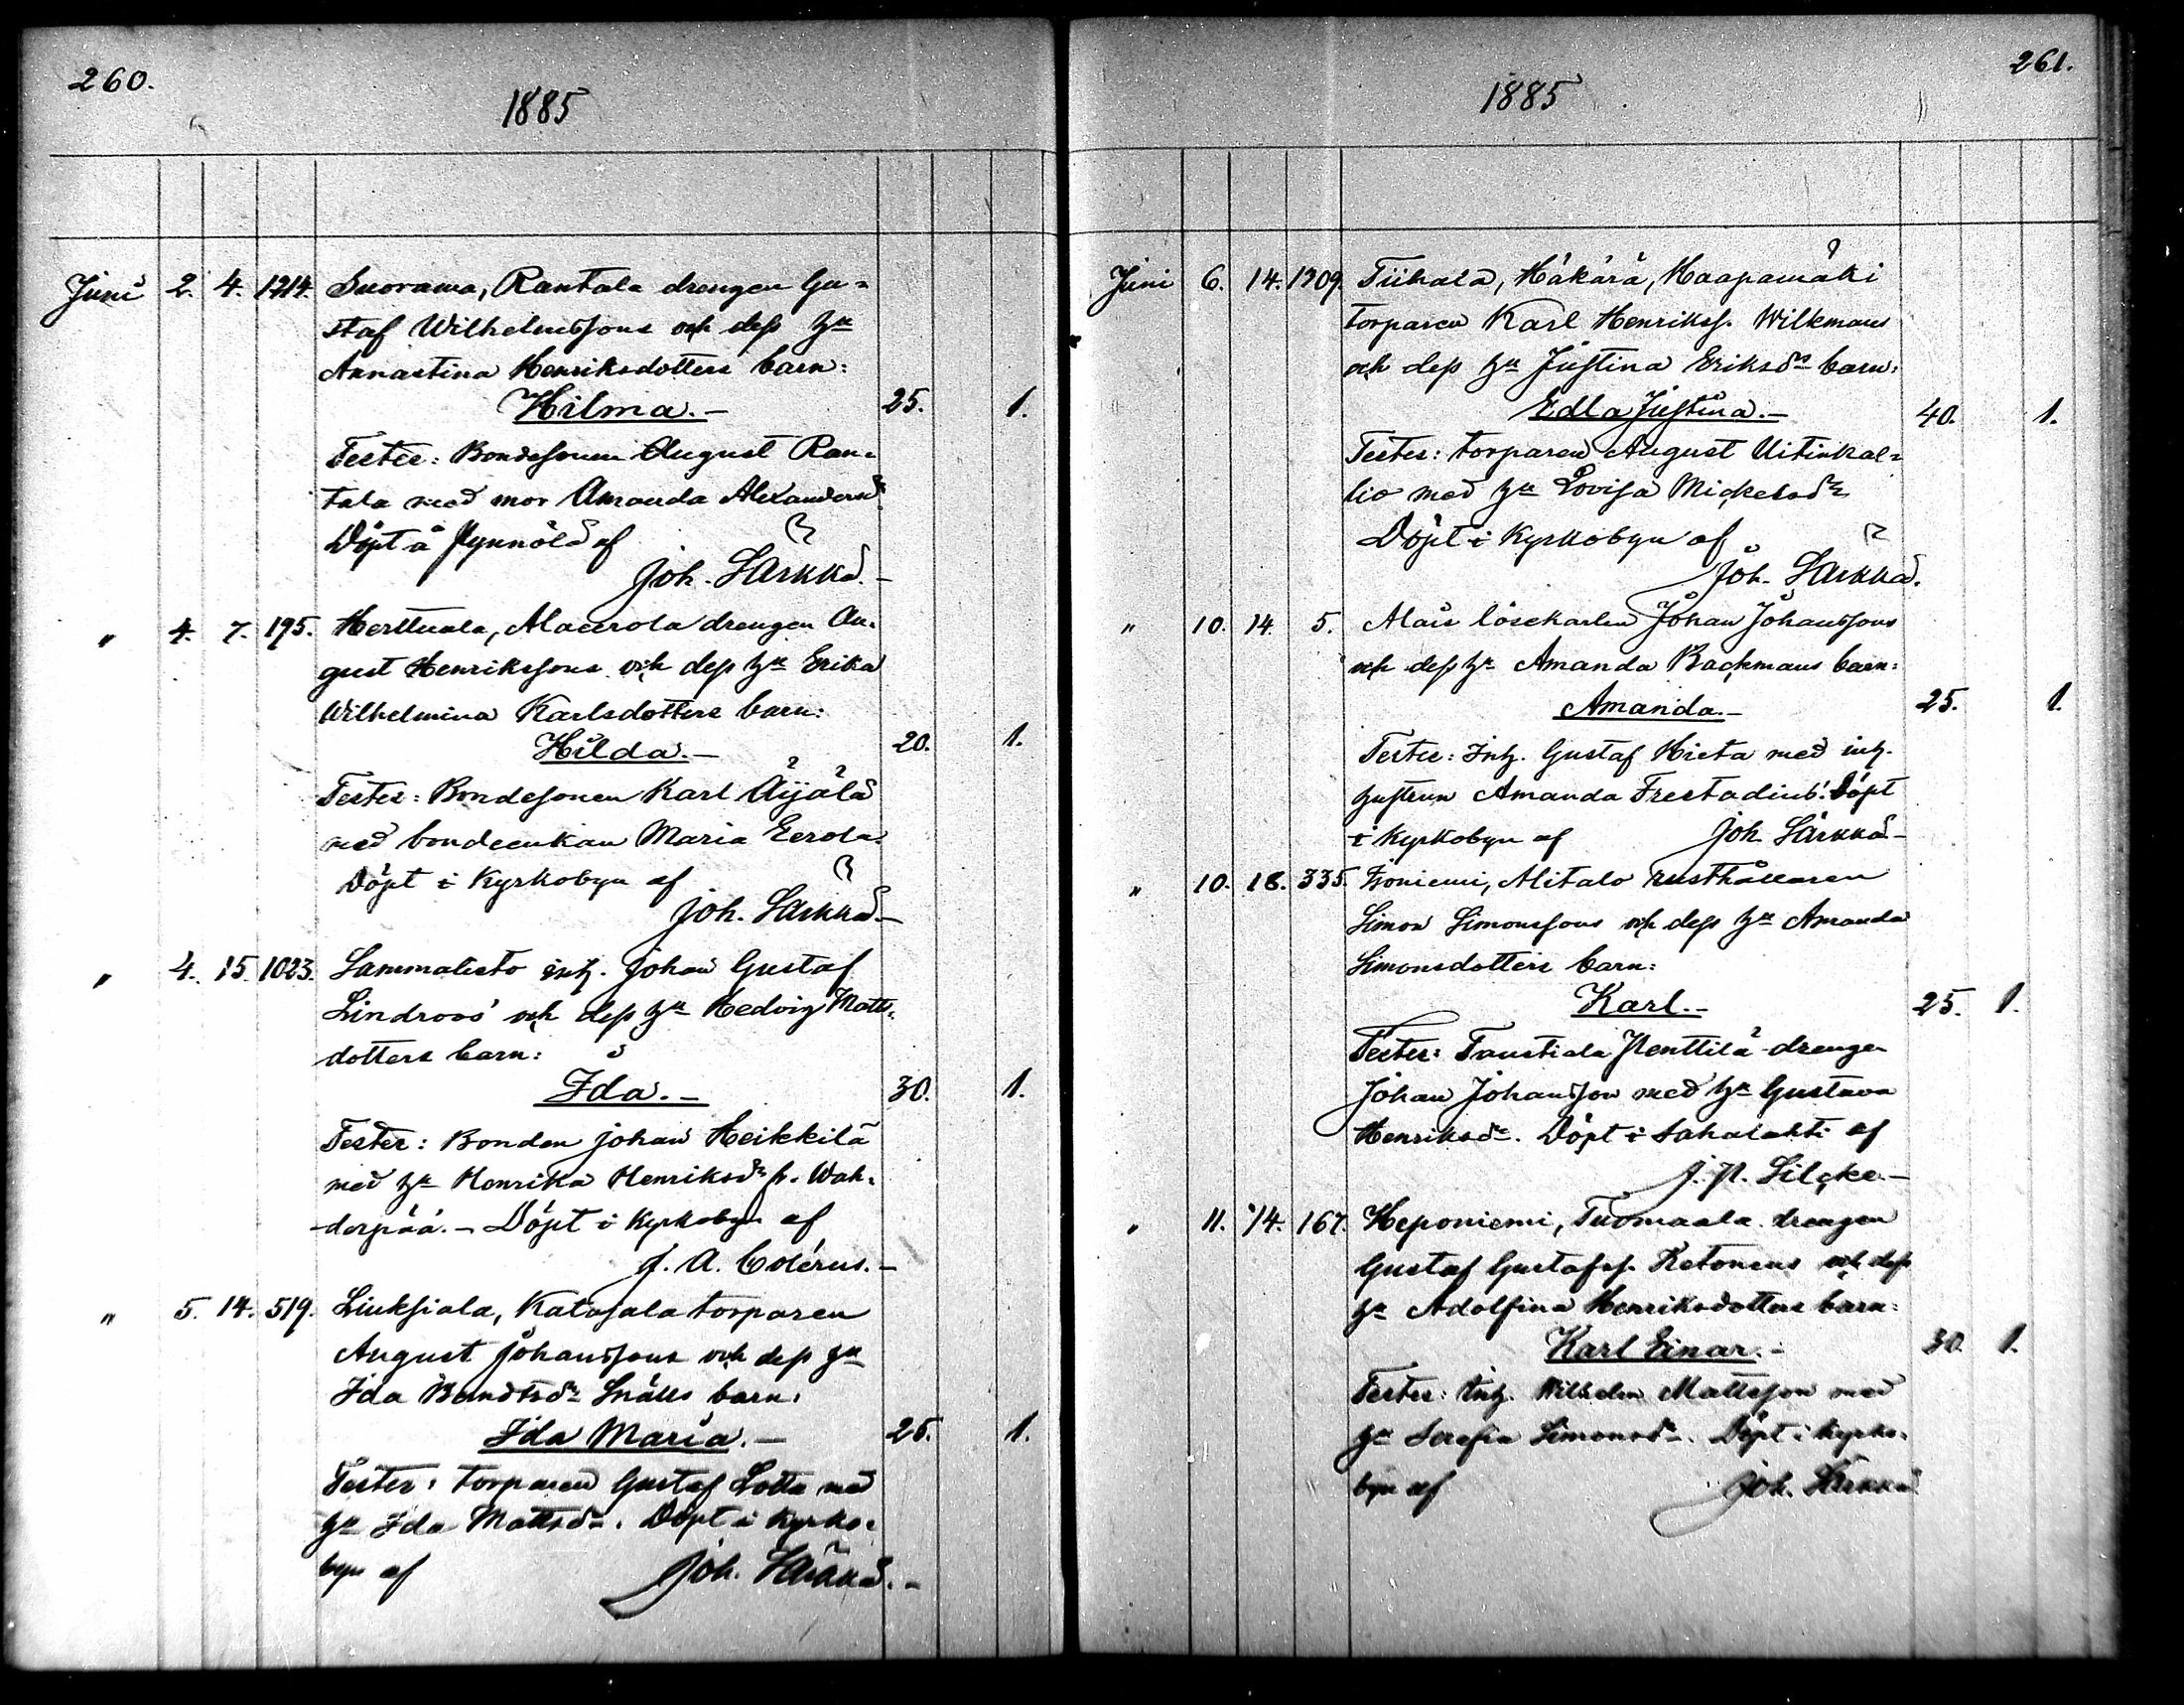 260.
1885
Juni 2. 4. 1214. Suorama, Rantala drengen Gu=
staf Wilhelmssons och dess h:u
Annastina Henriksdotters barn:
Hilma.- 25. 1.
Testes: Bondesonen August Ran=
tala med mor Amanda Alexandersd:r
Döpt å Pynnölä af
Joh. Särkkä.-
" 4. 7. 195. Herttuala, Alaeerola drengen Au=
gust Henrikssons och dess h:u Erika
Wilhelmina Karlsdotters barn:
Hilda.- 20. 1.
Testes: Bondesonen Karl Äijälä
med bondeenkan Maria Eerola.
Döpt i Kyrkobyn af
Joh. Särkkä.-
" 4. 15. 1023. Sammalisto inh. Johan Gustaf
Lindroos' och dess h:u Hedvig Matts=
dotters barn:
Ida.- 30. 1.
Testes: Bonden Johan Heikkilä
med h:u Henrika Henriksd:r fr. Wah=
derpää.- Döpt i Kyrkobyn af
J. A. Colérus.-
" 5. 14. 519. Liuksiala, Katajala torparen
August Johanssons och dess h:u
Ida Bendtsd:r Snälls barn:
Ida Maria.- 25. 1.
Testes: torparen Gustaf Lotta med
h:u Ida Mattsd:r. Döpt i Kyrko=
byn af Joh. Särkkä.-
261.
1885
Juni 6. 14. 1309. Tiihala, Häkärä, Haapamäki
torparen Karl Henrikss. Wilkmans
och dess h:u Justina Eriksd:rs barn:
Edla Justina.- 40. 1.
Testes: torparen August Uitinkal=
lio med h:u Lovisa Mickelsd:r
Döpt i Kyrkobyn af
Joh. Särkkä.
" 10. 14. 5. Alais lösekarlen Johan Johanssons
och dess h:u Amanda Backmans barn:
Amanda.- 25. 1.
Testes: Inh. Gustaf Hieta med inh.
hustrun Amanda Frestadius'. Döpt
i Kyrkobyn af Joh. Särkkä.-
" 10. 18. 335. Isoniemi, Alitalo rusthållaren
Simon Simonssons och dess h:u Amanda
Simonsdotters barn:
Karl.- 25. 1.
Testes: Taustiala Penttilä drengen
Johan Johansson med h:u Gustava
Henriksd:r. Döpt i Sahalahti af
Silcke.-
" 11. 14. 167. Heponiemi, Tuomaala drengen
Gustaf Gustafss. Ketonens och dess
h:u Adolfina Henriksdotters barn:
Karl Einar.- 30. 1.
Testes: Inh. Wilhelm Mattsson med
h:u Serafia Simonsd:r. Döpt i Kyrko=
byn af Joh. Särkkä